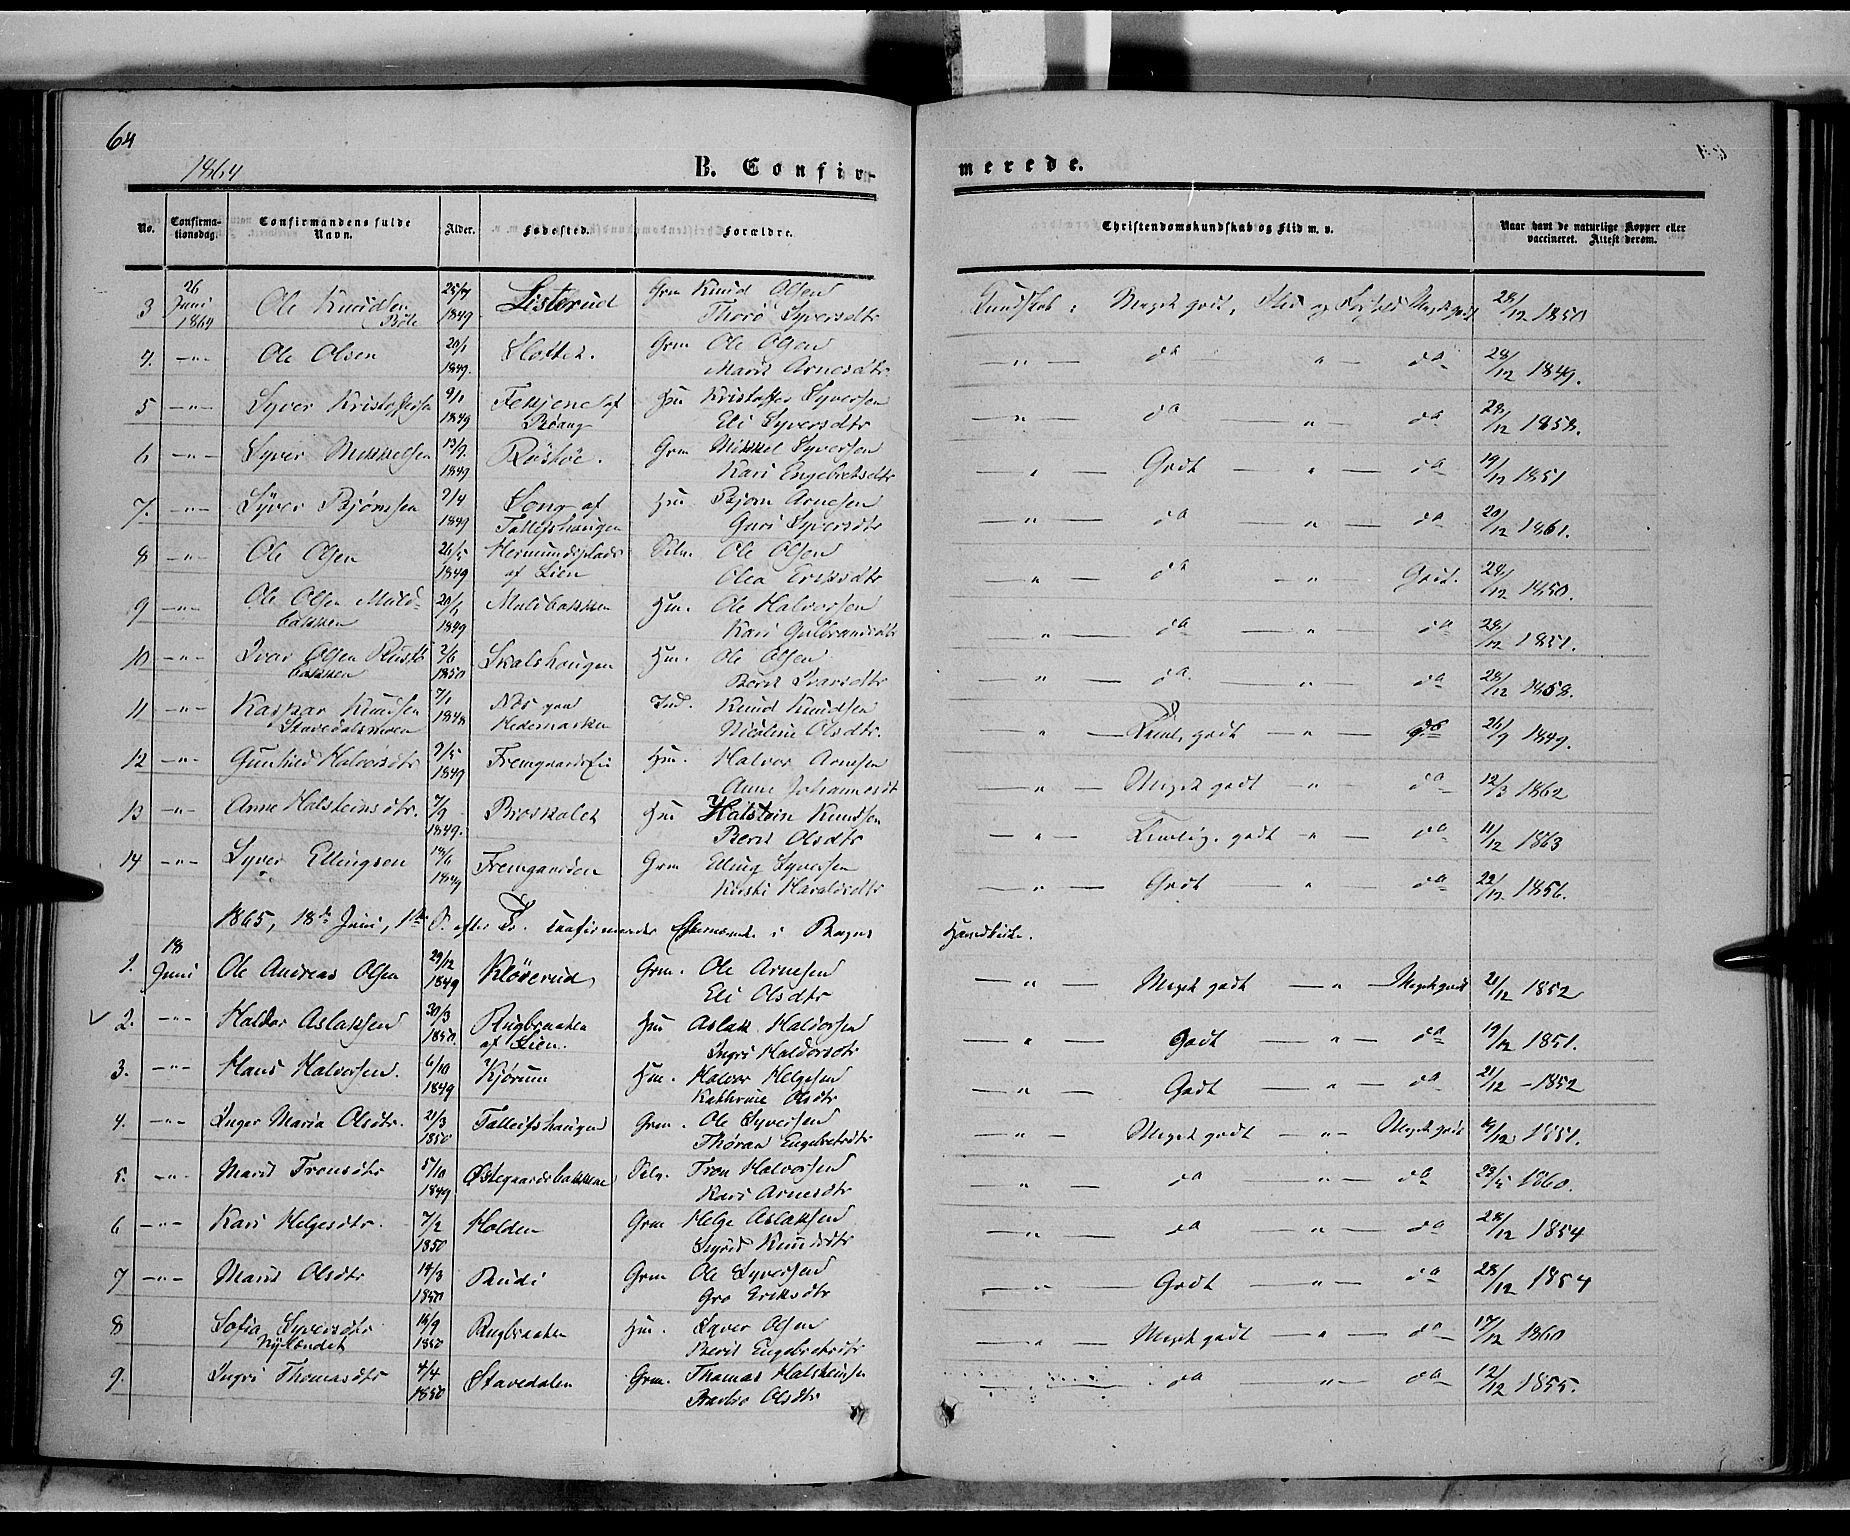 64
1864
B. Confir-
merede.
No.
Confirma-
tionsdag.
Confirmandens fulde
Navn.
Alder.
Fødested.
Forældre.
Christendomskundskab og Flid m. v.
Naar havt de naturlige Kopper eller
vaccineret. Attest derom.
3 26 Juni 1864 Ole Knudsen 25/7 1849 Listerud Grm Knud Olsen
Thoro Syversdtr
Kundskab: Meget godt, Flid og Forhold Megetgodt 28/12 1850
4. -"- Ole Olsen 20/1 1849. Slottet. Grm Ole Olsen
Marit Arnesdtr
" da " da 28/12 1849.
5 -"- Syver Kristoffersen 9/1 1849 Fekjene af Hm Kristoffer Syversen
Eli Syversdtr
" da " da 28/12 1858.
6 -"- Syver Mikkelsen 13/9. 1849 Røstøe. Grm Mikkel Syversen
Kari Engebretsdtr
" Godt " da 19/12 1851
7. -"- Syver Bjørnsen 9/4 1849 Song af Hm Bjørn Arnesen
Tolleifshaugen Guri Syversdtr
" da " da 20/12 1861.
8 -"- Ole Olsen 26/5 1849 Hermundsplads Ole Olsen
af Lien Olea Eriksdtr
" da " Godt. 28/12 1850.
9 -"- Ole Olsen Muld- 1849 Muldbakken Hm. Ole Halvorsen
bakken Kari Gulbrandsdtr
" da " da 28/12 1851.
10 -"- Ivar Olsen 2/6 1850 Skalshaugen Hm. Ole Olsen
bakken Berit Ivarsdtr
" da " da 28/12 1858.
11 -"- Kaspar Knudsen 7/1 1848 Næs paa Ind. Knud Knudsen
Stavedalsmoen Hedemarken Nicoline Olsdtr.
" Teml. godt " 26/9 1849.
12 -"- Gunhild Halvorsdtr 9/5 1849 Fremgaardsei Hm. Halvor Arnesen
Anne Johannesdt
" Meget godt " da 12/3 1862
13 -"- Anne Halsteinsdtr. 7/9 1849. Broskalet Hm Halstein Knudsen
Berit Olsdtr
" Temlig godt " da 11/12 1863
14 -"- Syver Ellingsen 1849 Fremgaarden Grm Elling Syversen
Kirsti Haraldsdtr
" Godt " da 22/12 1856.
1865, 18de Juni, 1ste S. efter Tr. confirmerede Efternævnte i Bagns
Hovedkirke.
1. 18 Juni Ole Andreas Olsen 29/12 1849 Kløverud Grm. Ole Arnesen
Eli Olsdtr
" Meget godt " Megetgodt 21/12 1852
2. -"- Haldor Aslaksen 20/3 1850. Rugbraaten Hm Aslak Haldorsen
af Lien. Ingri Haldorsdtr
" Godt " da 19/12 1851.
3. -"- Hans Halvorsen. 6/10 1849 Kjørum Hm. Halvor Helgesen
Kathrine Olsdtr
" Godt " da 21/12 - 1852
4. -"- Inger Maria Olsdtr. 21/3 1850 Tolleifshaugen Grm. Ole Syversen
Thoran Engebretsdtr
" Meget godt " Meget godt 1851.
5. -"- Marit Tronsdtr 5/10 1849. Østegaardsbakken Tron Halvorsen
Kari Arnesdtr
" da " da 23/5 1860.
6 -"- Kari Helgesdtr. 7/2 1850 Holden Grm Helge Aslaksen
Sigrid Knudsdtr
" da " da 28/12 1854
7 -"- Marit Olsdtr 14/3 1850 Rudi Grm Ole Syversen
Gro Eriksdtr
" Godt " da 28/12 1854
8 Sofia Syversdtr 16/9 1850 Rugbraaten Hm. Syver Olsen
Nylændet Berit Engebretsdtr
" Meget godt " da 17/12 1860
9. Ingri Thomasdtr 4/4 1850 Stavedalen Grm. Thomas Halsteinsen
Barbro Olsdtr
da " da 12/12 1855.